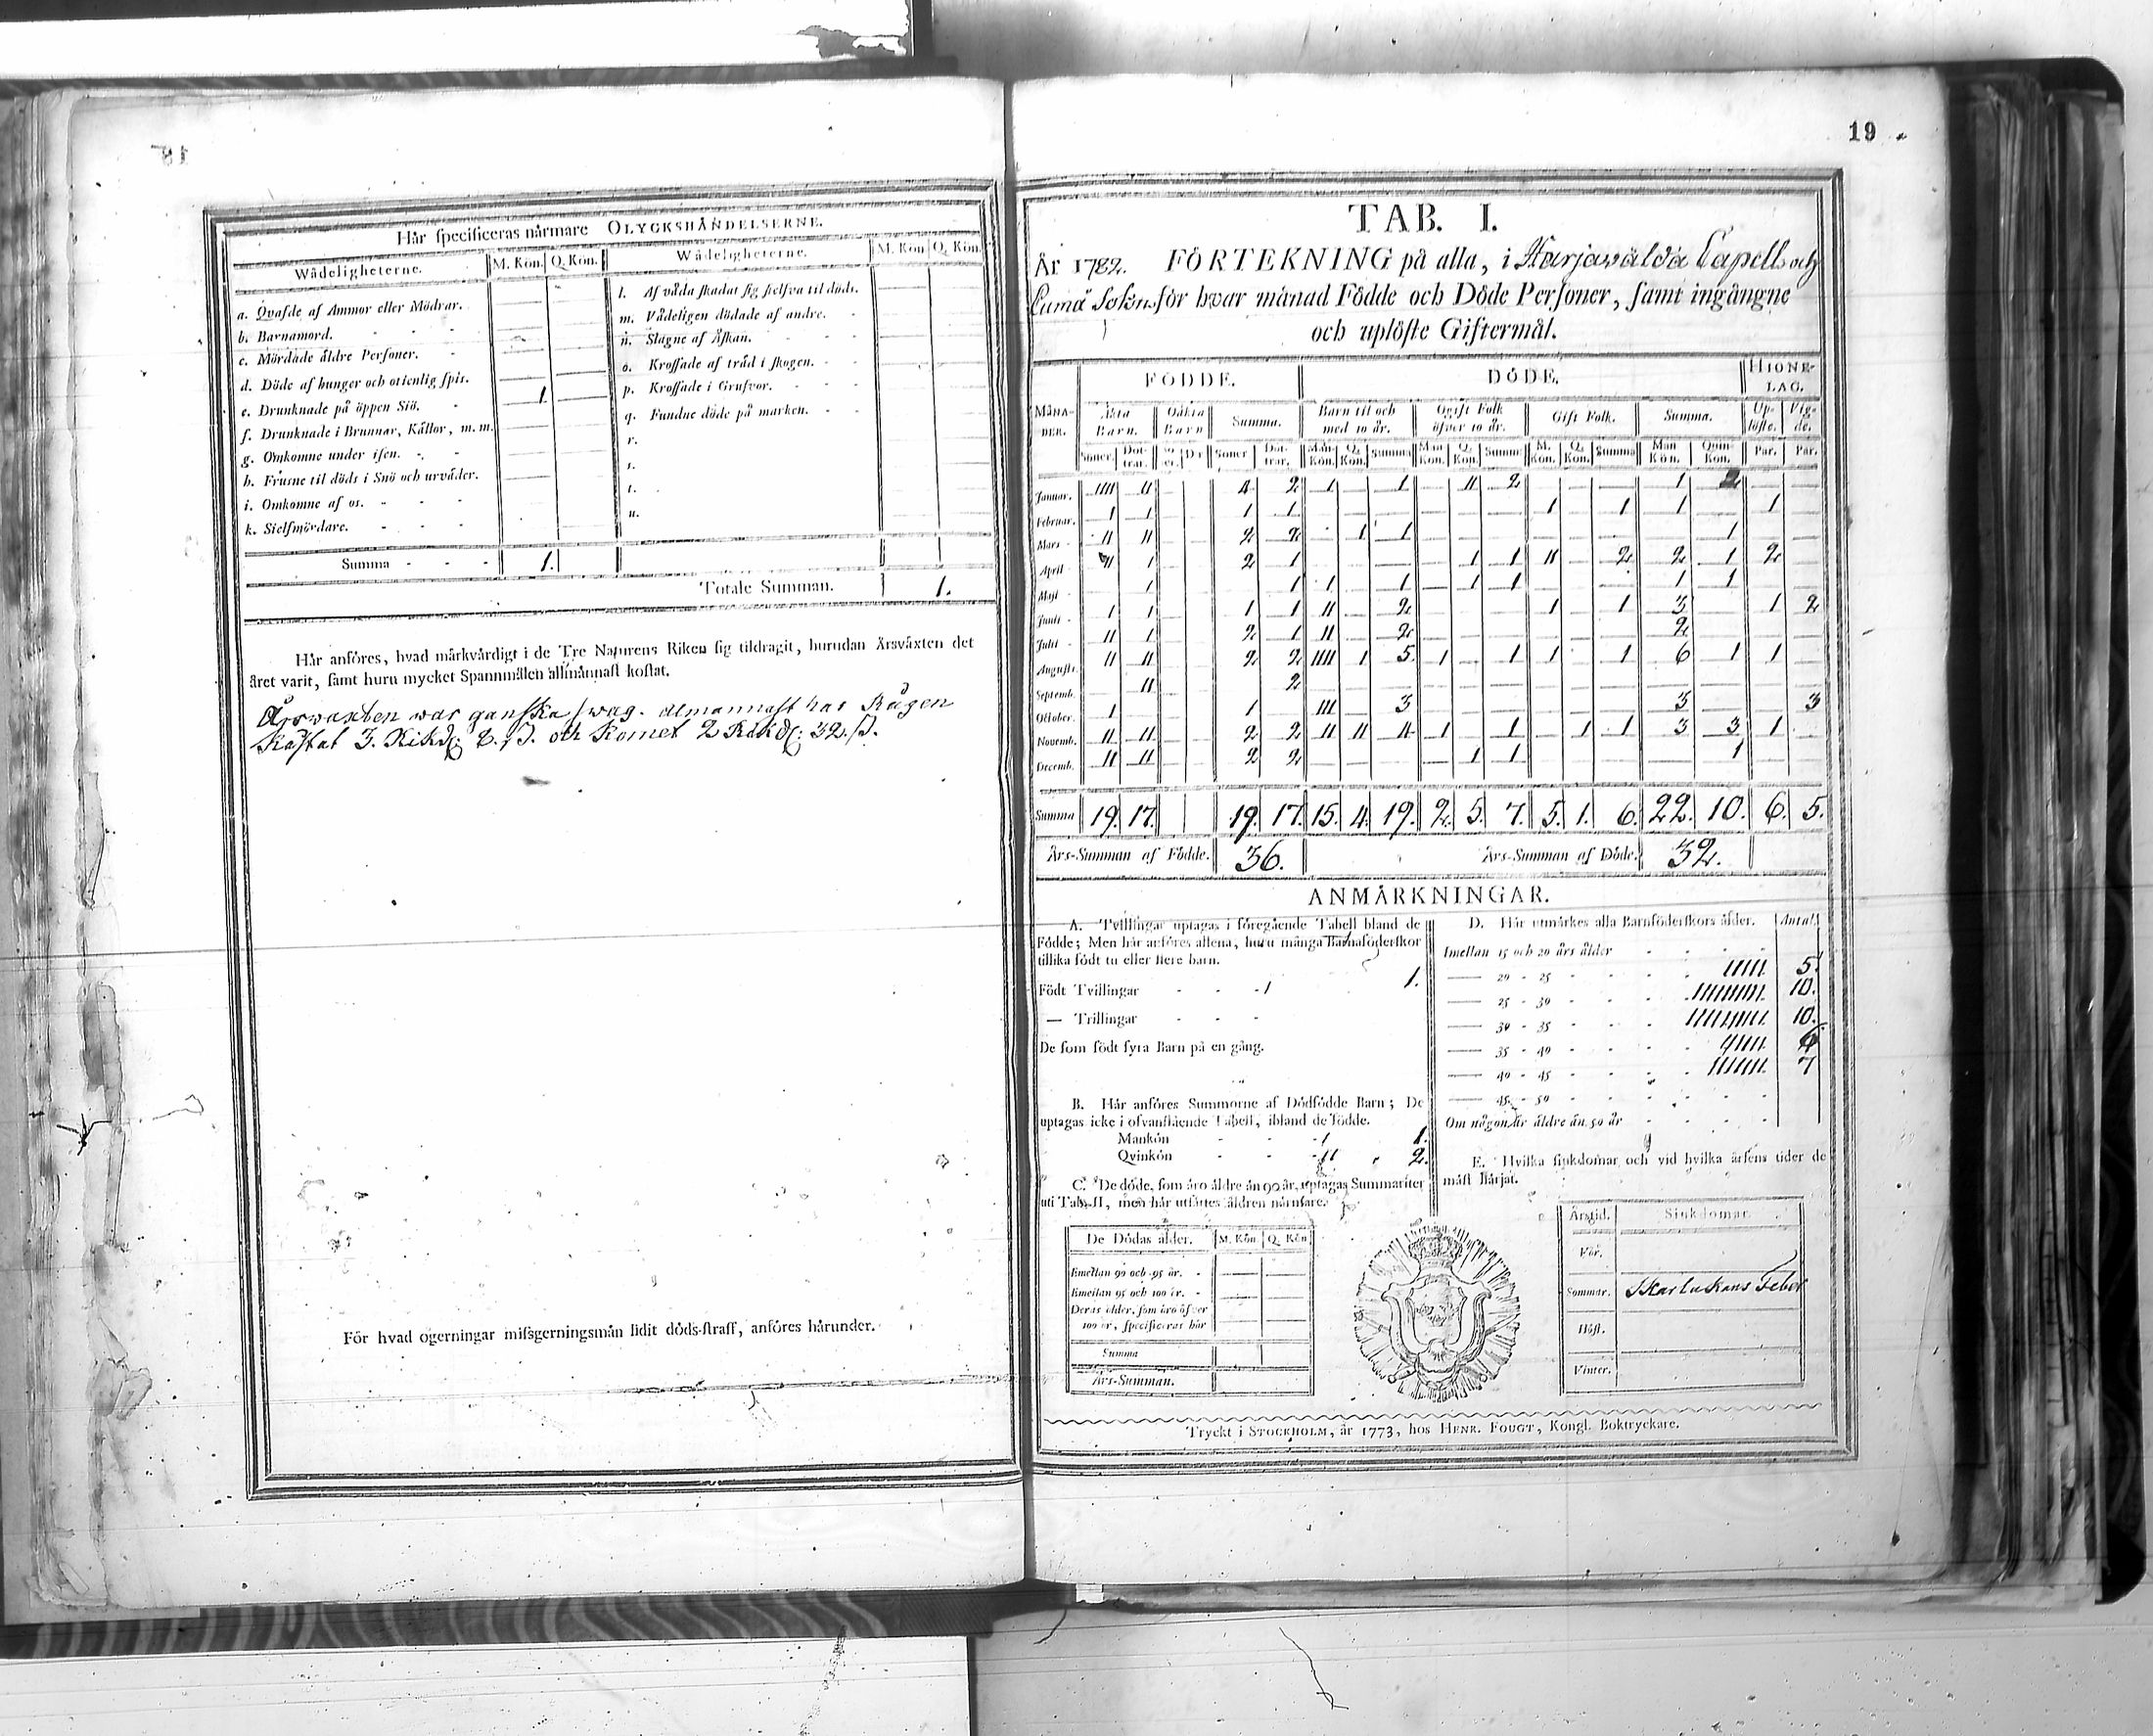 Hår specificeras nårmare OLYCKSHÅNDELSERNE.
Wådeligheterne. M. Kön. Q. Kön. Wådeligheterne. M. Kön Q. Kön.
a. Qvafde af Ammor eller Mödrar.
b. Barnamord. - - -
c. Mördade åldre Personer. -
d. Döde af hunger och otienlig spis.
e. Drunknade på öppen Siö. - 1
f. Drunknade i Brunnar, Kållor, m.m.
g. Omkomne under isen. - -
h. Frusne til döds i Snö och urvåder.
i. Omkomne af os. - - -
k. Sielfmördare. - - -
l. Af våda skadat sig sielfva til döds.
m. Vådeligen dödade af andre. -
n. Slagne af Åskan. - - -
o. Krossade af tråd i skogen. - -
p. Krossade i Grufvor. - - -
q. Fundne döde på marken. - -
r.
s.
t.
u.
Summa - - - 1.
Totale Summan. 1.
Hår anföres, hvad mårkvårdigt i de Tre Naturens Riken sig tildragit, hurudan Årsvåxten det
året varit, samt huru mycket Spannmålen allmånnast kostat.
Årswaxten war ganska swag. almannast har Rågen
Kåstat 3. Rikd: 8. s. och Kornet 2 Rikd: 32. s.
För hvad ogerningar missgerningsmån lidit döds-straff, anföres hårunder.
19
TAB. I.
År 1782. FÖRTEKNING på alla, i Harjawalda Capell och
Eura Sokn för hvar månad Födde och Döde Personer, samt ingångne
och uplöste Giftermål.
FÖDDE. DÖDE. HIONE-
LAG.
MÅNA-
DER. Åkta
Barn. Oåkta
Barn Summa. Barn til och
med 10 år. Ogift Folk
öfver 10 år. Gift Folk. Summa. Up-
löste. Vig-
de.
Söner. Döt-
trar. Söner Döt-
trar. Mån-
Kön. Q.
Kön. Summa Mån
Kön. Q.
Kön. Summ: M.
Kön. Q.
Kön. Summa Man
Kön. Qvin-
Kön. Par. Par.
Januar. 1111 11 4 2 1 1 11 2 1 2
Februar. 1 1 1 1 1 1 1 1
Mars - 11 11 2 2 1 1 1
April 11 1 2 1 1 1 11 2 2 1 2
Maji - 1 1 1 1 1 1 1 1
Junii - 1 1 1 1 11 2 1 1 3 1 2
Julii - 11 1 2 1 11 2 2
Augusti. 11 11 2 2 1111 1 5. 1 1 1 1 6 1 1
Septemb. 11 2
Octobor. 1 1 111 3 3 3
Novemb. 11 11 2 2 11 11 4 1 1 1 1 3 3 1
Decemb. 11 11 2 2 1 1 1
Summa 19. 17. 19. 17. 15. 4. 19. 2. 5. 7. 5. 1. 6. 22. 10. 6. 5.
Års-Summan af Födde. 36. Års-Summan af Döde. 32.
ANMÅRKNINGAR.
A. Tvillingar uptagas i föregående Tabell bland de
Födde; Men hår anföres allena, huru många Barnaföderskor
tillika födt tu eller flere barn.
Födt Tvillingar - - - 1 1.
— Trillingar - - -
De som födt fyra Barn på en gång.
B. Hår anföres Summorne af Dödfödde Barn; De
uptagas icke i ofvanstående Tabell, ibland de födde.
Mankön - - - 1 1.
Qvinkön - - - 11 2.
C. De döde, som åro åldre ån 90 år, uptagas Summariter
uti Tab. II, men hår utsåttes åldren nårmare.
De Dödas ålder. M. Kön Q. Kön
Emellan 90 och 95 år. -
Emellan 95 och 100 år. -
Deras ålder, som åro öfver
100 år, specificeras hår
Summa
Års-Summan.
D. Hår utmårkes alla Barnföderskors ålder. Antal
Imellan 15 och 20 års ålder - - - -
— 20 - 25 - - - 11111 5.
— 25 - 30 - - - 1111111111 10.
— 30 - 35 - - - 1111111111 10.
— 35 - 40 - - -
— 40 - 45 - - - 1111111 7
— 45 - 50 - - - -
Om någon år åldre ån 50 år - - - -
E. Hvilka siukdomar och vid hvilka årsens tider de
måst hårjat.
Årstid. Siukdomar.
Vår.
Sommar. Skarlakans Feber
Höst.
Vinter.
Tryckt i STOCKHOLM, år 1773, hos HENR. FOUGT, Kongl. Boktryckare.